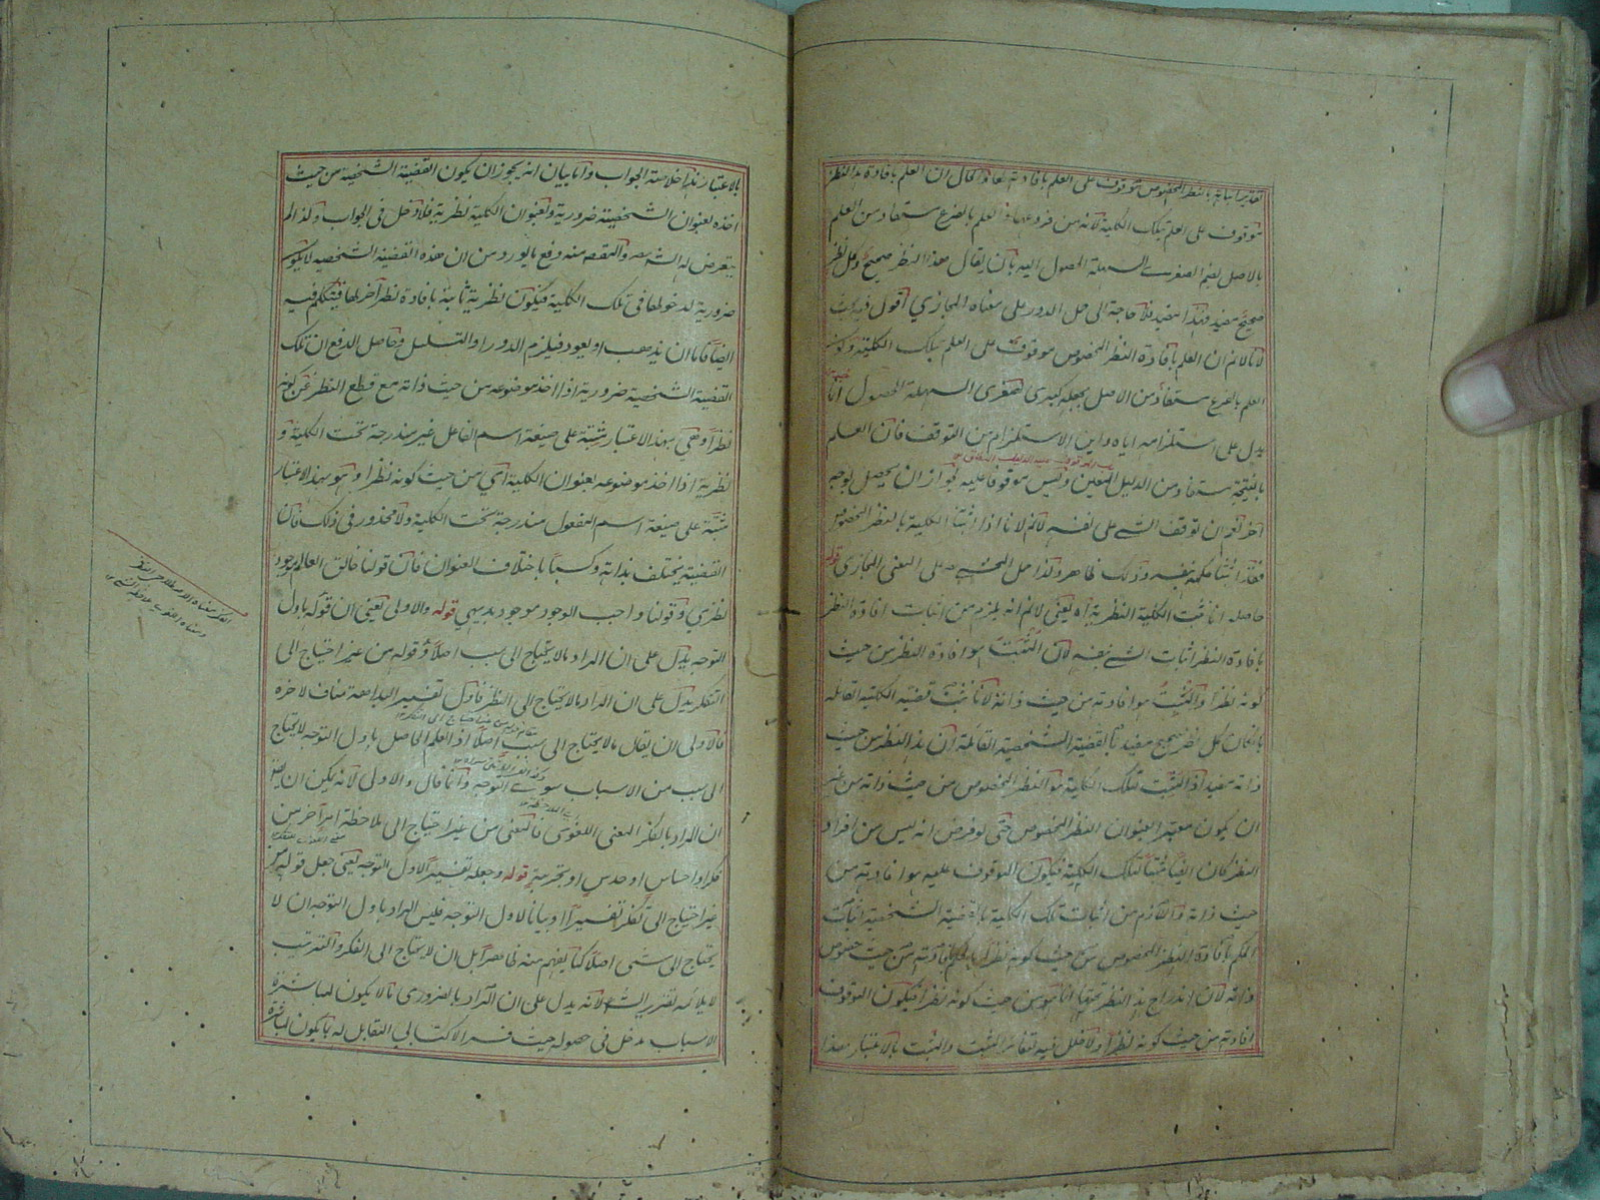 موقوف على العلم بتلك الكلية لانه من فروعها والعلم بالفرع مستفاد من العلم
بالاصل بضم الصغرى السهلة الحصول اليه بان يقال هذا النظر صحيح وكل نظر
صحيح مفيد فهذا مفيد فلا حاجة الى حمل الدور على معناه المجازي اقول
لانا لا نم ان العلم بافادة النظر المخصوص موقوف على العلم بتلك الكلية وكون
العلم بالفرع مستفاد من الاصل بجعله كبرى لصغرى السهلة الحصول انما
يدل على استلزامه اياه واين الاستلزام من التوقف فان العلم
بالنتيجة مستفاد من الدليل المعين وليس موقوفا عليه لجواز ان يحصل بوجه
آخر ان توقف الشئ على نفسه لازم لانا اذا اثبتنا الكلية بالنظر المخصوص
فقد اثبتنا حكمه بنفسه وذلك ظاهر ولذا حمل المحشي على المعنى المجازي قوله
حاصله انا نثبت الكلية النظرية اه يعني لا نم انه يلزم من اثبات افادة النظر
بافادة النظر اثبات الشئ بنفسه لان المثبت هو افادة النظر من حيث
كونه نظرا والمثبت هو افادته من حيث ذاته لانا نثبت قضية الكلية القائلة
بان كل نظر صحيح مفيد بالقضية الشخصية القائلة ان هذا النظر من حيث
ذاته مفيد اذ المثبت لتلك الكلية هو النظر المخصوص من حيث ذاته من غير
ان يكون معتبرا بعنوان النظر المخصوص حتى لو فرض انه ليس من افراد
النظر كان ايضا مثبتا لتلك الكلية فيكون الموقوف عليه هو افادته من
حيث ذاته واللازم من اثبات تلك الكلية بالقضية الشخصية اثبات
الحكم بافادة النظر المخصوص من حيث كونه نظرا بافادته من حيث خصوص
ذاته لان اندراج هذا النظر تحتها انما هو من حيث كونه نظرا فيكون الموقوف
افادته من حيث كونه نظرا ولا خلل فيه لتغاير المثبت والمثبت بالاعتبار هذا
بالاعتبار هذا خلاصة الجواب واما بيان انه يجوز ان يكون القضية الشخصية من حيث
اخذه بعنوان الشخصية ضرورية وبعنوان الكلية نظرية فلا دخل في الجواب ولذا لم
يتعرض له الشارح والمقصود منه دفع ما يورد من ان هذه القضية الشخصية لا يكون
ضرورية لدخولها في تلك الكلية فيكون نظرية ثابتة بافادة نظر آخر لها فيتكلم فيه
ايضا فاما ان يذهب او يعود فيلزم الدور او التسلسل وحاصل الدفع ان تلك
القضية الشخصية ضرورية اذا اخذ موضوعه من حيث ذاته مع قطع النظر عن كونه
نظرا وهي بهذا الاعتبار مثبتة على صيغة اسم الفاعل غير مندرجة تحت الكلية و
نظرية اذا اخذ موضوعه بعنوان الكلية اي من حيث كونه نظرا وهو بهذا الاعتبار
مثبتة على صيغة اسم المفعول مندرجة تحت الكلية ولا محذور في ذلك فان
القضية يختلف بداهة وكسبا باختلاف العنوان فان قولنا خالق العالم موجود
نظري وقولنا واجب الوجود موجود بديهي قوله والاولى يعني ان قوله باول
التوجه يدل على ان المراد ما لا يحتاج الى سبب اصلا وقوله من غير احتياج الى
التفكر يدل على ان المراد ما لا يحتاج الى النظر فاول تفسير البداهة مناف لآخره
فالاولى ان يقال ما لا يحتاج الى سبب اصلا اذ العلم الحاصل باول التوجه لا يحتاج
الى سبب من الاسباب سوى التوجه وانما قال والاولى لانه يمكن ان يقال
ان المراد بالفكر المعنى اللغوي فالمعنى من غير احتياج الى ملاحظة امر آخر من
فكر او احساس او حدس او تجربة قوله وجعله تفسيرا لاول التوجه يعني جعل قوله من
غير احتياج الى تفكر تفسيرا او بيانا لاول التوجه فليس المراد باول التوجه ان لا
يحتاج الى شئ اصلا كما يفهم منه ظاهرا بل ان لا يحتاج الى الفكر والترتيب
لا يلائمه تقرير الشارح لانه يدل على ان المراد بالضروري ما لا يكون لمباشرة
الاسباب مدخل في حصوله حيث فسر الاكتسابي المقابل له بما يكون لمباشرة